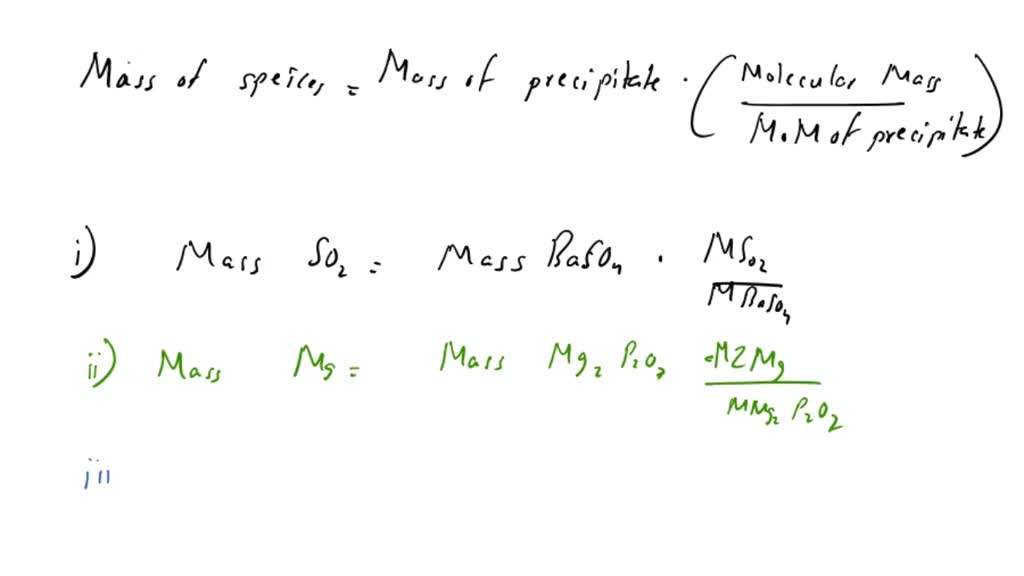 Mass of speices = Mass of precipitate · (Molecular Mass / M.M of precipitate)
i) Mass SO2 = Mass BaSO4 · MSO2 / MBaSO4
ii) Mass Mg = Mass Mg2 P2O7 · M2Mg / MMg2 P2O2
iii